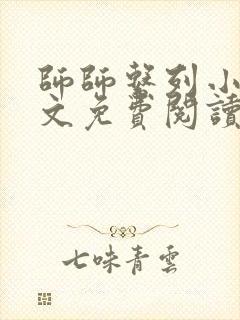 師師整列小
文免費閱讀
七味青雲